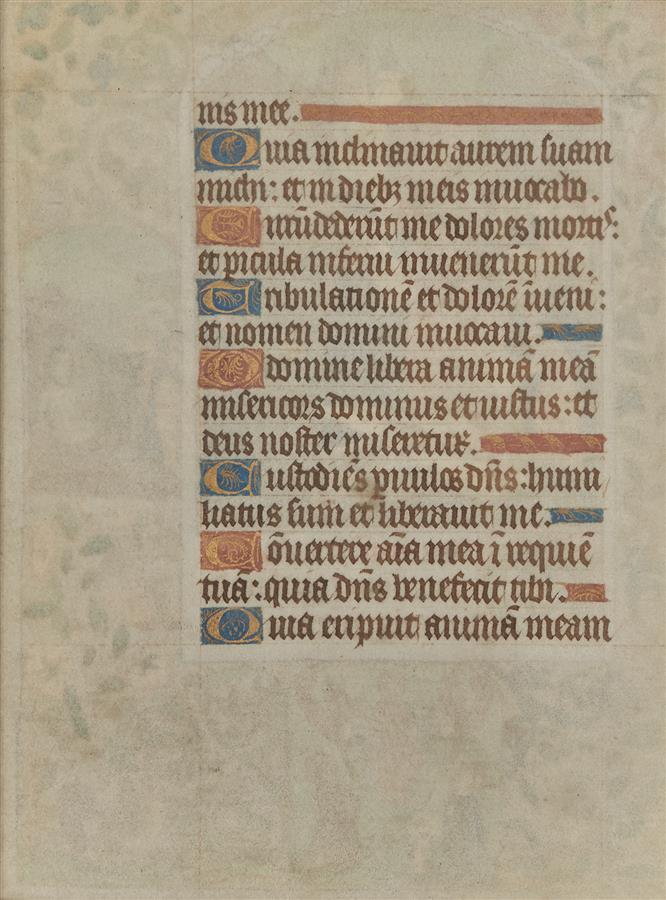 nis mee.
Quia inclinauit aurem suam
michi: et in dieb₃ meis inuocabo.
Circūdederūt me dolores mortis:
et picula inferni inuenerūt me.
Tribulationē et dolorē īueni:
et nomen domini inuocaui.
O domine libera animā meā
misericors dominus et iustus: et
deus noster miseretur.
Custodiēs puulos dn̄s: humi
liatus sum et liberauit me.
Cōuertere aīa mea ī requiē
tuā: quia dn̄s benefecit tibi.
Quia eripuit animā meam